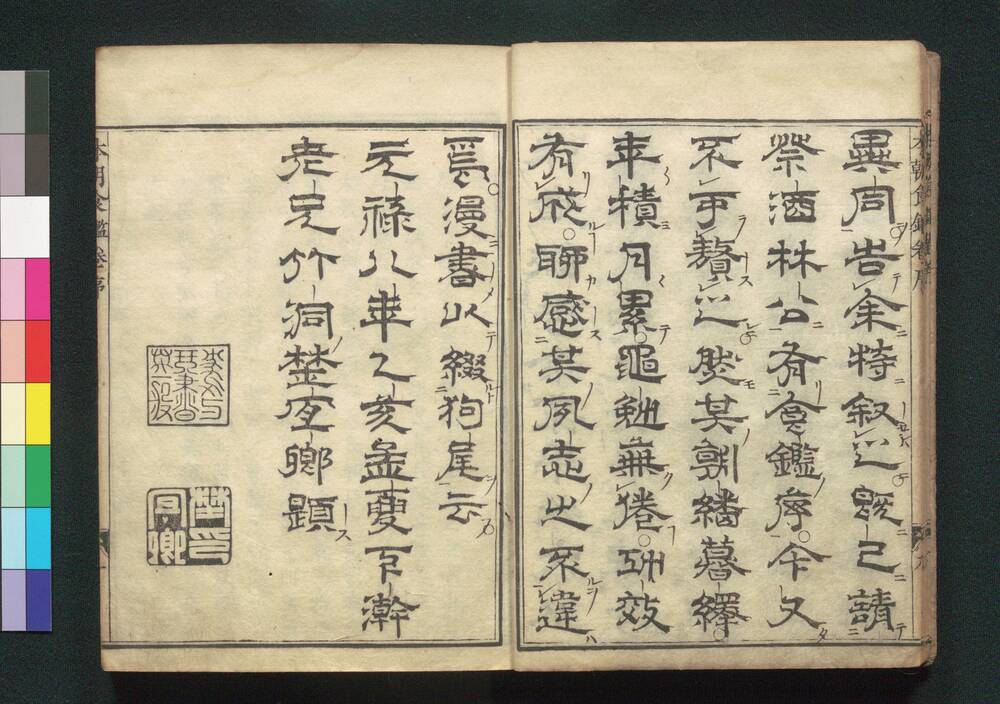 異同告余特叙之既已請
祭酒林公有食鑑序今又
不可贅之然其朝繙暮繹
年積月累黽勉無倦功效
有成聊感其夙志之不違
焉漫書以綴狗尾云
元禄八年乙亥孟夏下澣
老兄竹洞埜宜卿題